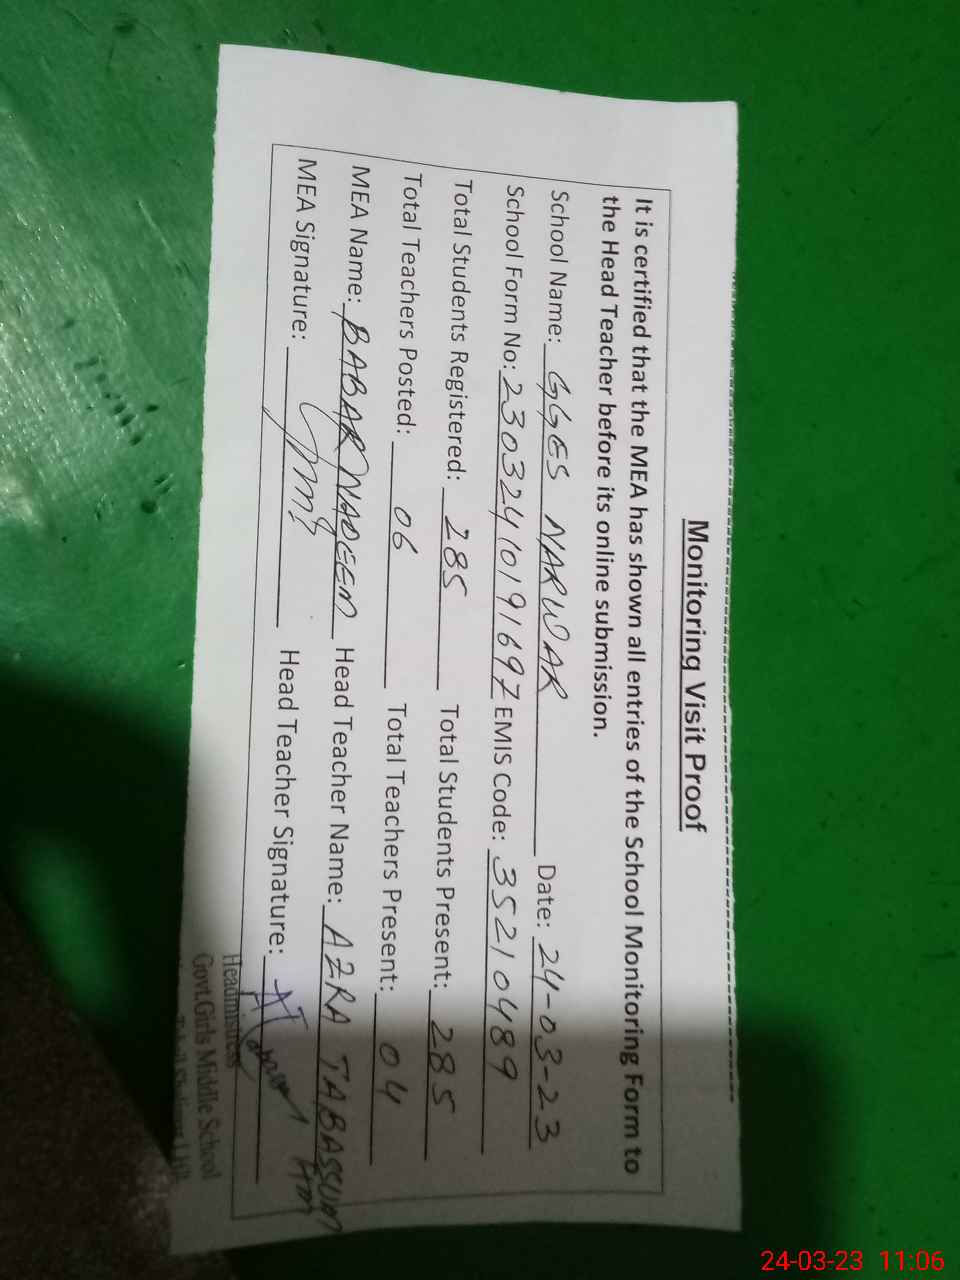 Monitoring Visit Proof
It is certified that the MEA has shown all entries of the School Monitoring Form to
the Head Teacher before its online submission.
School Name: GGES NARWAR Date: 24-03-23
School Form No: 23032410191697 EMIS Code: 35210489
Total Students Registered: 285 Total Students Present: 285
Total Teachers Posted: 06 Total Teachers Present: 04
MEA Name: BABAR NADEEM Head Teacher Name: AZRA TABASSUM
MEA Signature: Head Teacher Signature:
Headmistress
Govt.Girls Middle School
24-03-23 11:06